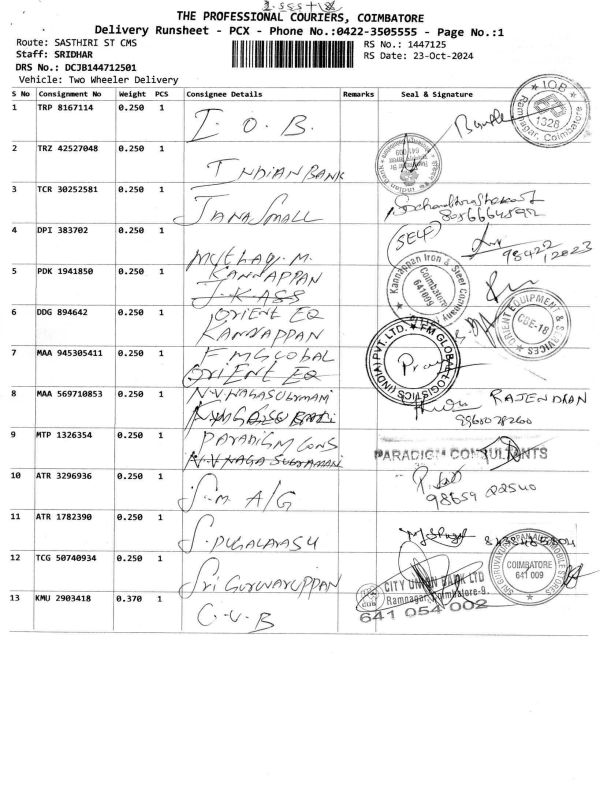 THE PROFESSIONAL COURIERS, COIMBATORE
Delivery Runsheet - PCX - Phone No.:0422-3505555 - Page No.:1
Route: SASTHIRI ST CMS
RS No.: 1447125
Staff: SRIDHAR
RS Date: 23-Oct-2024
DRS No.: DCJB144712501
Vehicle: Two Wheeler Delivery
S No Consignment No Weight PCS Consignee Details Remarks Seal & Signature
1 TRP 8167114 0.250 1 I.O.B.
IOB Ramnagar, Coimbatore 1328
2 TRZ 42527048 0.250 1 INDIAN BANK
3 TCR 30252581 0.250 1 JANA SMALL
4 DPI 383702 0.250 1 MUTHAY. M. (SELF)
5 PDK 1941850 0.250 1 KANNAPPAN
J-KASS
Kannappan Iron & Steel Company Coimbatore 641009
6 DDG 894642 0.250 1 ORIENT EQ
KANNAPPAN
ORIENT EQUIPMENT & SERVICES CBE-18
7 MAA 945305411 0.250 1 FM GLOBAL
ORIENT EQ
FM GLOBAL LOGISTICS (INDIA) PVT. LTD.
8 MAA 569710853 0.250 1 N.V NAGASUBRAMANI
RAJENDRAN
9 MTP 1326354 0.250 1 PARADIGM CONS
N.V NAGA SUBRAMANI
PARADIGM CONSULTANTS
10 ATR 3296936 0.250 1 S.M A/G
11 ATR 1782390 0.250 1 S. PUGALARASU
12 TCG 50740934 0.250 1 Sri Guruvaruppan
COIMBATORE 641 009
CITY UNION BANK LTD
Ramnagar, Coimbatore-9.
641 054 002
13 KMU 2903418 0.370 1 C.U.B